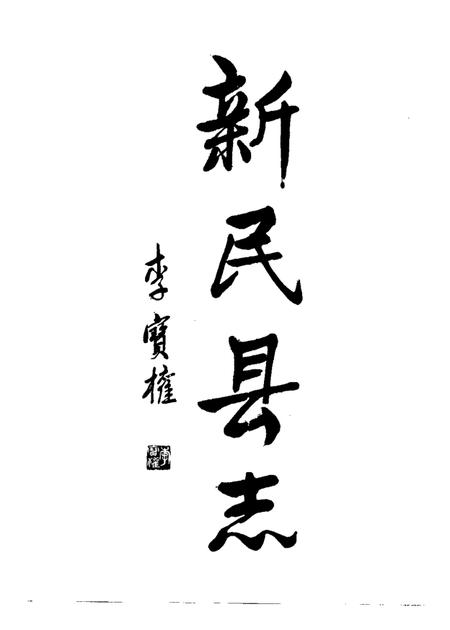 新民县志
李寶權